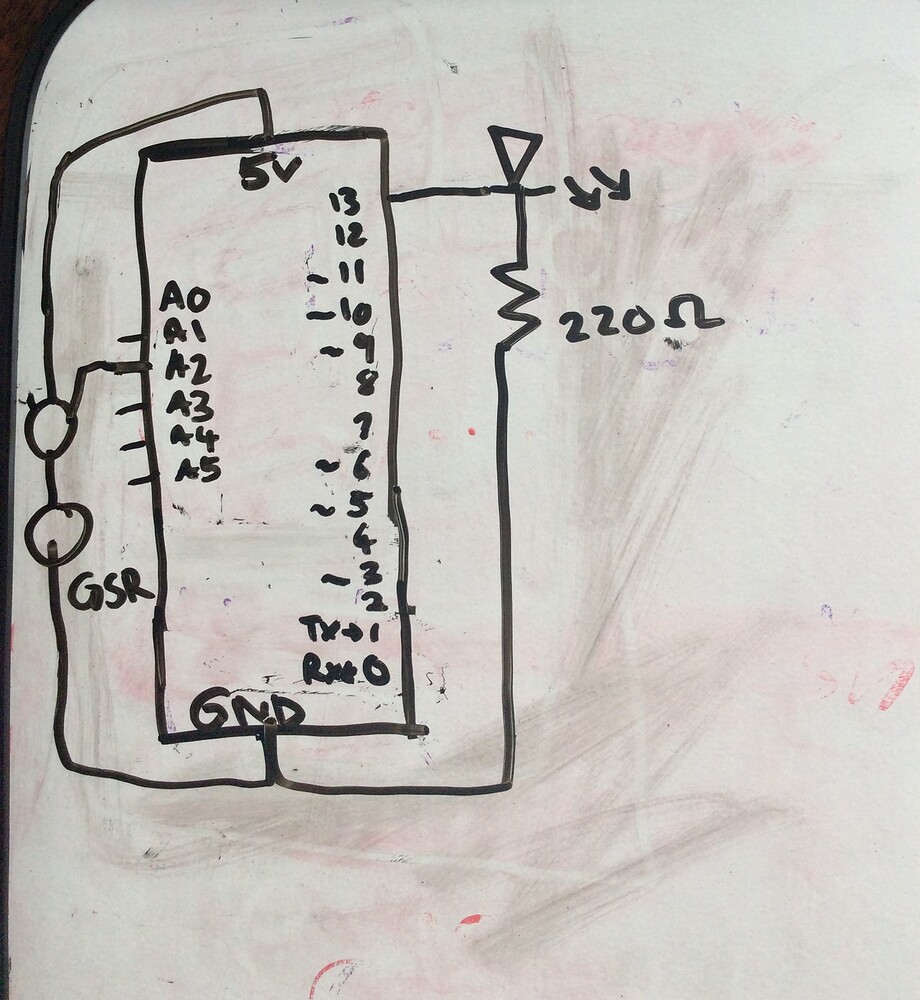 5V
13
12
~11
~10
~9
8
7
~6
~5
4
~3
2
TX→1
RX←0
A0
A1
A2
A3
A4
A5
GSR
GND
220Ω